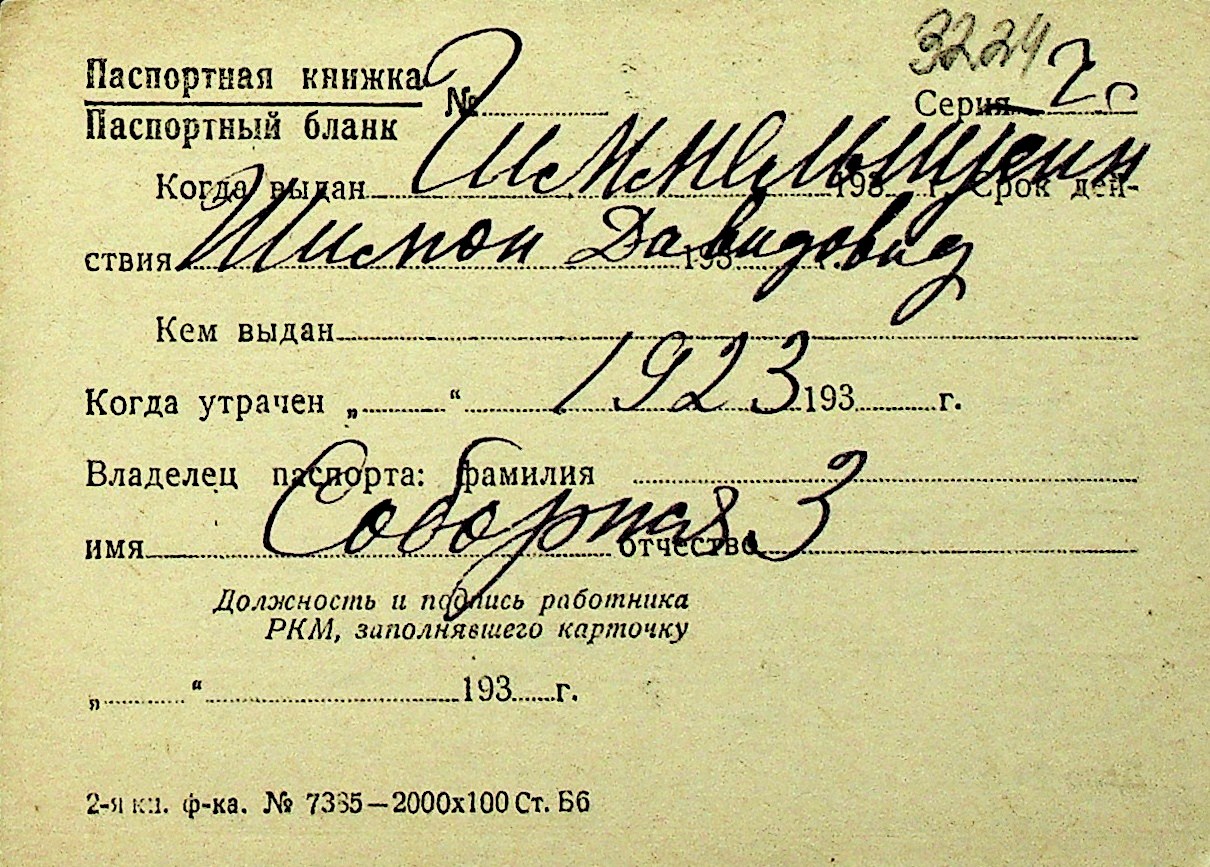 3224
Паспортная книжка № Серия 2с
Паспортный бланк
Когда выдан 193 г. Срок дей-
ствия 193 г.
Шимон Давидович
Кем выдан
1923
Когда утрачен „ “ 193 г.
Владелец паспорта: фамилия
Соборная 3
имя отчество
Должность и подпись работника
РКМ, заполнявшего карточку
„ “ 193 г.
2-я кн. ф-ка. № 7385—2000х100 Ст. Бб